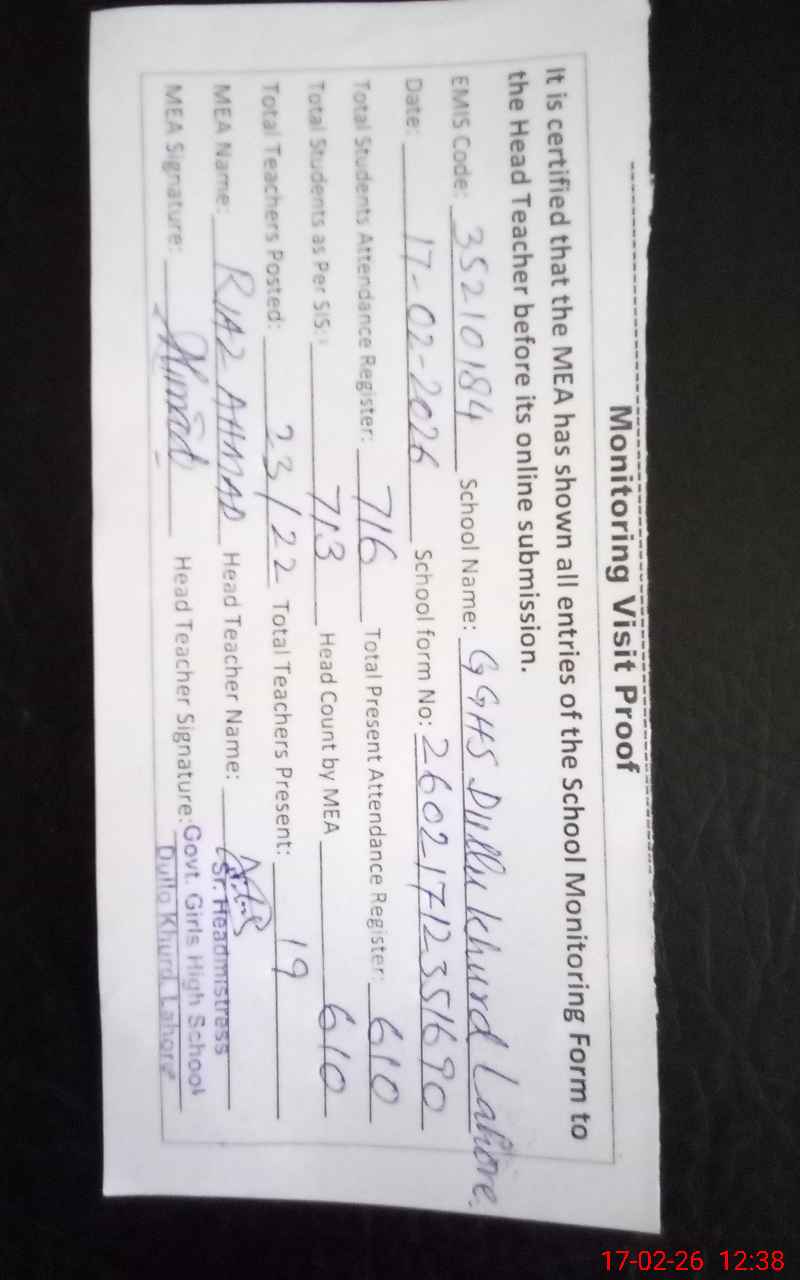 Monitoring Visit Proof
It is certified that the MEA has shown all entries of the School Monitoring Form to
the Head Teacher before its online submission.
EMIS Code: 35210184 School Name: GGHS Dullu Khurd Lahore.
Date: 17-02-2026 School form No: 260217123551690
Total Students Attendance Register: 716 Total Present Attendance Register: 610
Total Students as Per SIS: 713 Head Count by MEA 610
Total Teachers Posted: 23/22 Total Teachers Present: 19
MEA Name: RIAZ AHMAD Head Teacher Name:
Sr. Headmistress
MEA Signature: Ahmad Head Teacher Signature: Govt. Girls High School
Dullo Khurd, Lahore
17-02-26 12:38